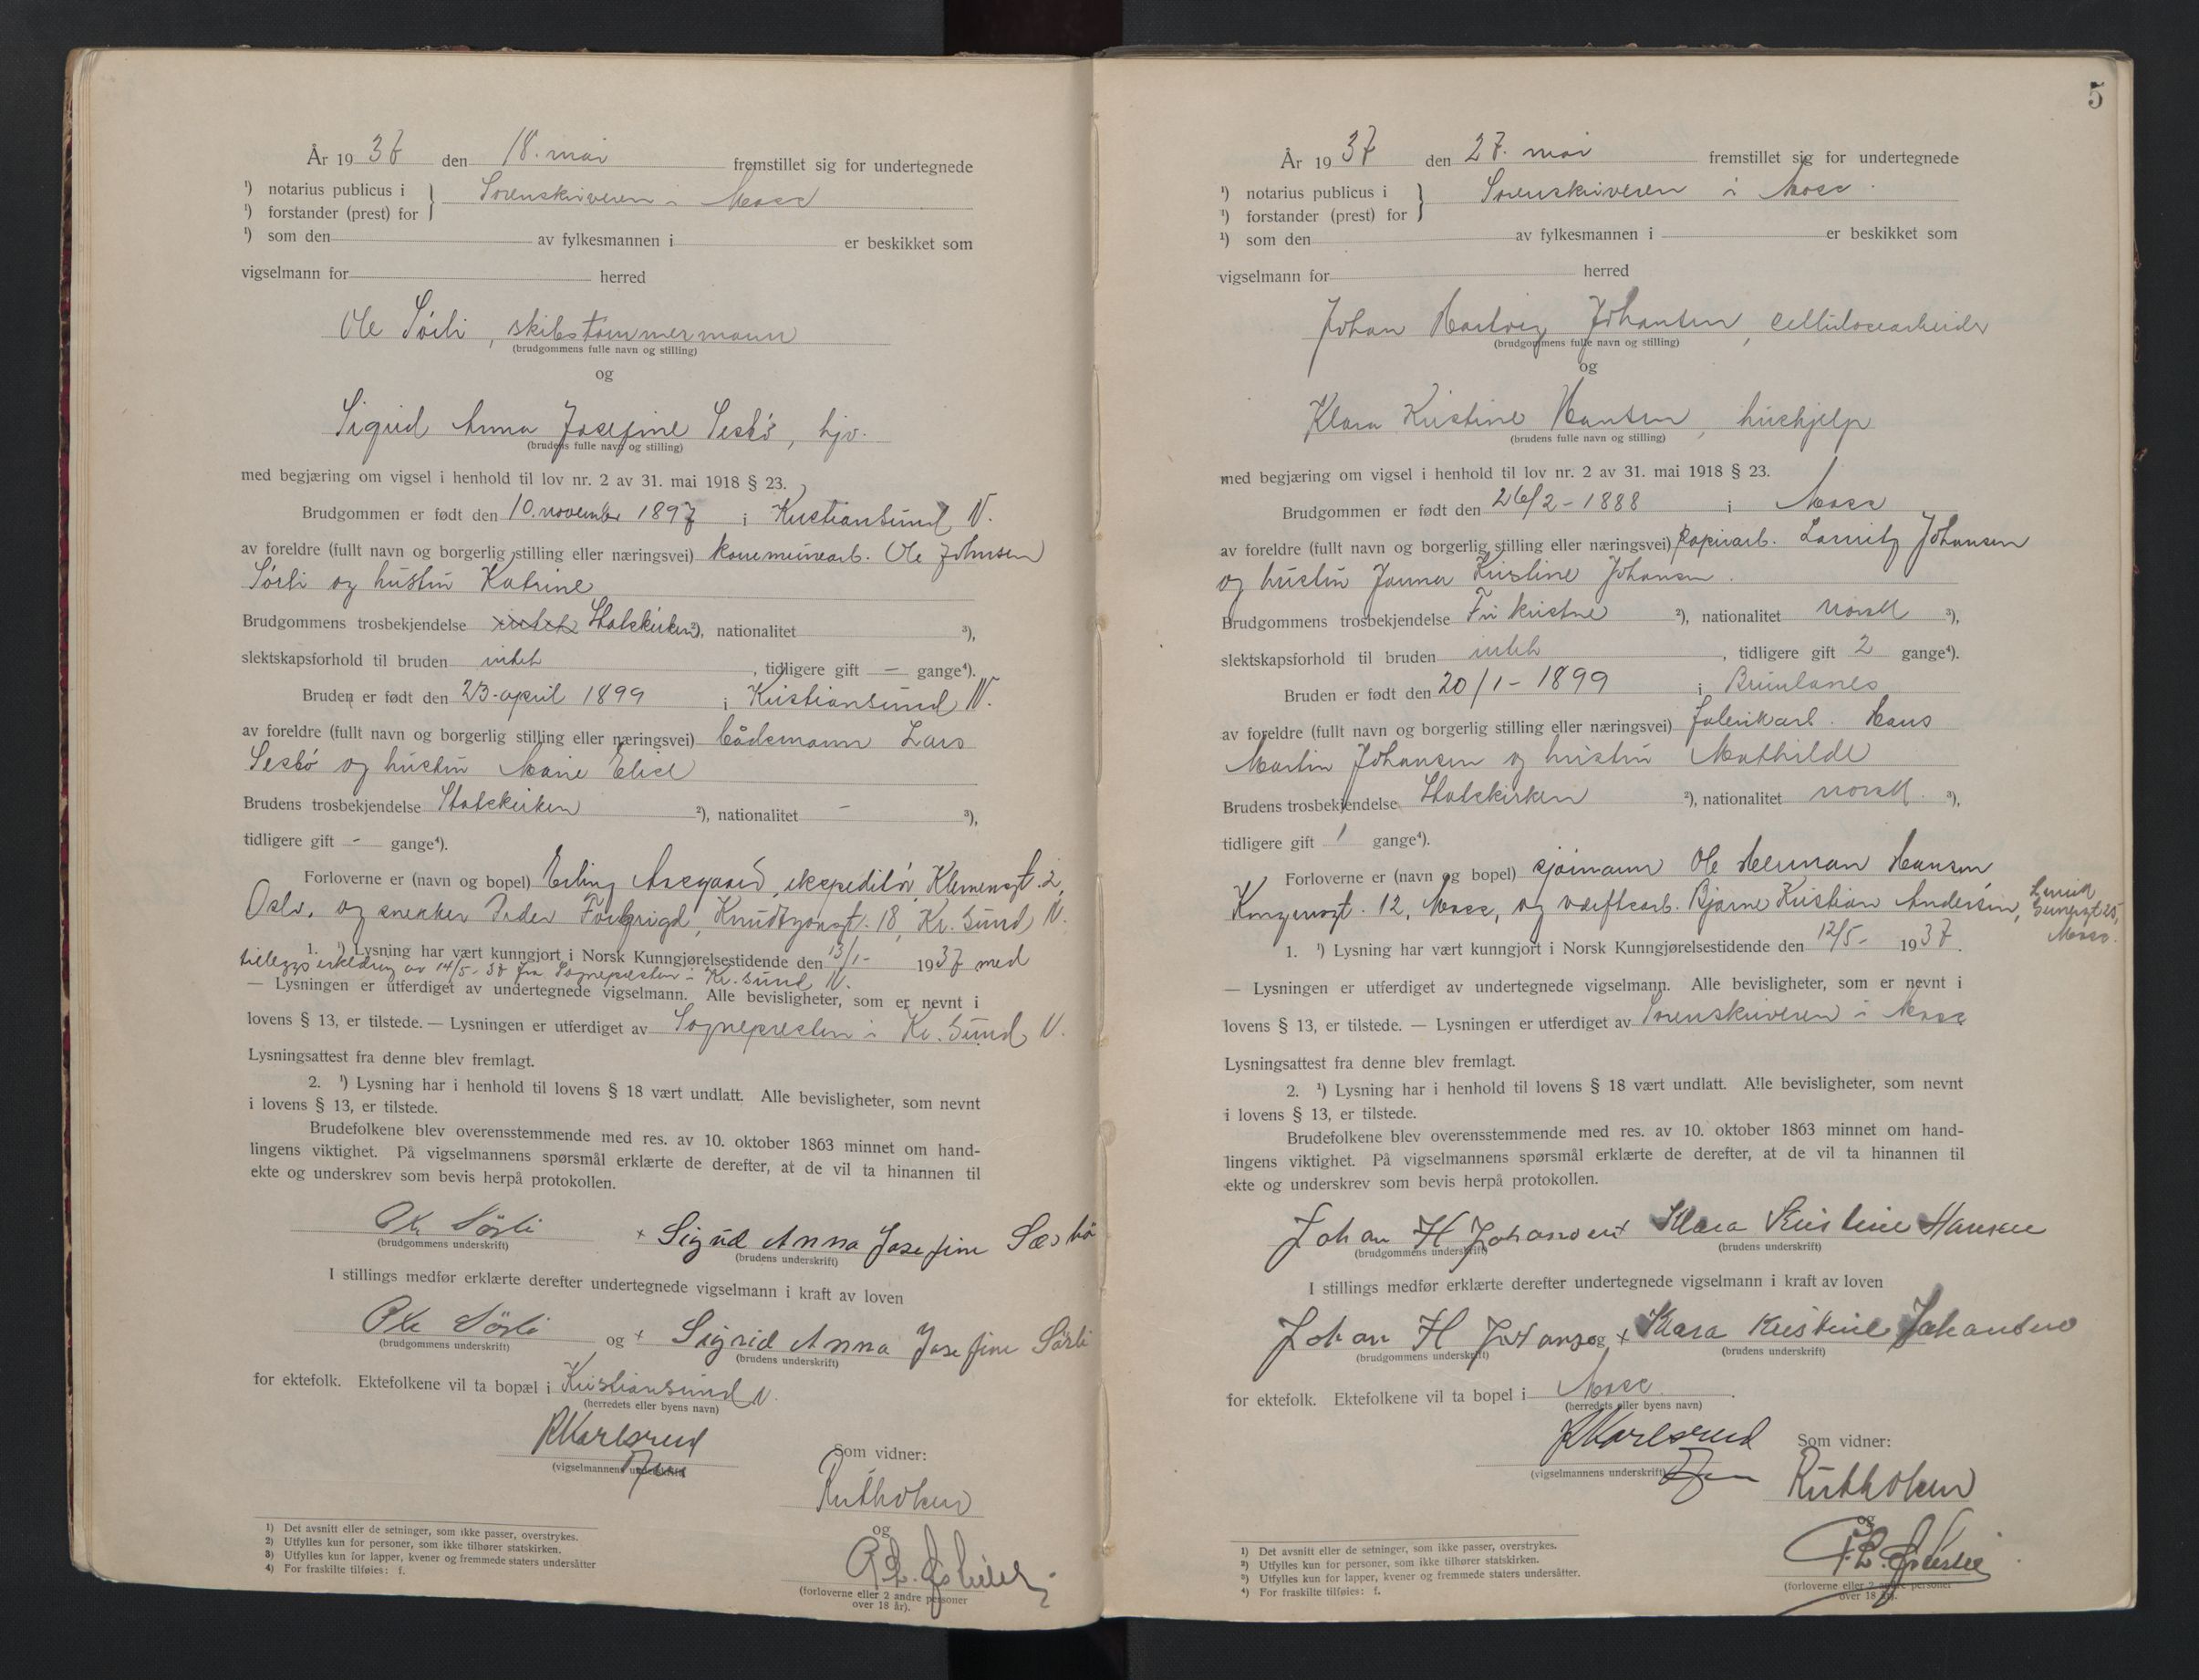 År 1937 den 18. mai fremstillet sig for undertegnede
¹) notarius publicus i } Sorenskriveren i Moss
¹) forstander (prest) for
¹) som den av fylkesmannen i er beskikket som
vigselmann for herred
Ole Sörli, skibstømmermann
(brudgommens fulle navn og stilling)
og
Sigrid Anna Josefine Sesbö, hjv.
(brudens fulle navn og stilling)
med begjæring om vigsel i henhold til lov nr. 2 av 31. mai 1918 § 23.
Brudgommen er født den 10. november 1897 i Kristiansund N.
av foreldre (fullt navn og borgerlig stilling eller næringsvei) Ole Johnsen
Sörli og hustru Katrine
Brudgommens trosbekjendelse Statskirken ²), nationalitet ³),
slektskapsforhold til bruden intet, tidligere gift — gange⁴).
Bruden er født den 23. april 1899 i Kristiansund N.
av foreldre (fullt navn og borgerlig stilling eller næringsvei) bådsmann Lars
Sesbö og hustru Marie Elise
Brudens trosbekjendelse Statskirken ²), nationalitet - ³),
tidligere gift - gange⁴).
Forloverne er (navn og bopel) Erling Aasgaard, ekspeditör, Klemensgt. 2,
Oslo, og snekker Peder Knudtzonsgt. 18, Kr. Sund N.
1. ¹) Lysning har vært kunngjort i Norsk Kunngjørelsestidende den 13/1- 1937 med
tilleggserklæring av 14/5-37 fra Sognepresten i Kr. Sund N.
— Lysningen er utferdiget av undertegnede vigselmann. Alle bevisligheter, som er nevnt i
lovens § 13, er tilstede. — Lysningen er utferdiget av Sognepresten i Kr. Sund N.
Lysningsattest fra denne blev fremlagt.
2. ¹) Lysning har i henhold til lovens § 18 vært undlatt. Alle bevisligheter, som nevnt
i lovens § 13, er tilstede.
Brudefolkene blev overensstemmende med res. av 10. oktober 1863 minnet om hand-
lingens viktighet. På vigselmannens spørsmål erklærte de derefter, at de vil ta hinannen til
ekte og underskrev som bevis herpå protokollen.
Ole Sörli × Sigrid Anna Josefine Sæsbö
(brudgommens underskrift) (brudens underskrift)
I stillings medfør erklærte derefter undertegnede vigselmann i kraft av loven
Ole Sörli og × Sigrid Anna Josefine Sörli
(brudgommens underskrift) (brudens underskrift)
for ektefolk. Ektefolkene vil ta bopæl i Kristiansund N.
(herredets eller byens navn)
Karlsrud
(vigselmannens underskrift)
Som vidner:
Ruth Olsen
og
(forloverne eller 2 andre personer
over 18 år).
1) Det avsnitt eller de setninger, som ikke passer, overstrykes.
2) Utfylles kun for personer, som ikke tilhører statskirken.
3) Utfylles kun for lapper, kvener og fremmede staters undersåtter
4) For fraskilte tilføies: f.
5
År 1937 den 27. mai fremstillet sig for undertegnede
¹) notarius publicus i } Sorenskriveren i Moss.
¹) forstander (prest) for
¹) som den av fylkesmannen i er beskikket som
vigselmann for herred
Johan Hartvig Johansen, cellulosearbeider
(brudgommens fulle navn og stilling)
og
Klara Kristine Hansen, hushjelp
(brudens fulle navn og stilling)
med begjæring om vigsel i henhold til lov nr. 2 av 31. mai 1918 § 23.
Brudgommen er født den 26/2-1888 i Moss
av foreldre (fullt navn og borgerlig stilling eller næringsvei) papirarb. Lauritz Johansen
og hustru Kristine Johansen.
Brudgommens trosbekjendelse Fri kristne ²), nationalitet norsk ³),
slektskapsforhold til bruden intet, tidligere gift 2 gange⁴).
Bruden er født den 20/1-1899 i Brunlanes
av foreldre (fullt navn og borgerlig stilling eller næringsvei) fabrikarb. Hans
Martin Johansen og hustru Mathilde
Brudens trosbekjendelse Statskirken ²), nationalitet norsk. ³),
tidligere gift 1 gange⁴).
Forloverne er (navn og bopel) sjömann Ole Herman Hansen
Kongensgt. 12, Moss, og verftsarb. Bjarne Kristian Andersen, Moss.
1. ¹) Lysning har vært kunngjort i Norsk Kunngjørelsestidende den 12/5- 1937.
— Lysningen er utferdiget av undertegnede vigselmann. Alle bevisligheter, som er nevnt i
lovens § 13, er tilstede. — Lysningen er utferdiget av Sorenskriveren i Moss
Lysningsattest fra denne blev fremlagt.
2. ¹) Lysning har i henhold til lovens § 18 vært undlatt. Alle bevisligheter, som nevnt
i lovens § 13, er tilstede.
Brudefolkene blev overensstemmende med res. av 10. oktober 1863 minnet om hand-
lingens viktighet. På vigselmannens spørsmål erklærte de derefter, at de vil ta hinannen til
ekte og underskrev som bevis herpå protokollen.
Johan H Johansen × Klara Kristine Hansen
(brudgommens underskrift) (brudens underskrift)
I stillings medfør erklærte derefter undertegnede vigselmann i kraft av loven
Johan H Johansen og × Klara Kristine Johansen
(brudgommens underskrift) (brudens underskrift)
for ektefolk. Ektefolkene vil ta bopel i Moss.
(herredets eller byens navn)
Karlsrud
(vigselmannens underskrift)
Som vidner:
Ruth Olsen
og
(forloverne eller 2 andre personer
over 18 år).
1) Det avsnitt eller de setninger, som ikke passer, overstrykes.
2) Utfylles kun for personer, som ikke tilhører statskirken.
3) Utfylles kun for lapper, kvener og fremmede staters undersåtter.
4) For fraskilte tilføies: f.